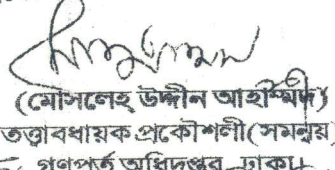 (মোসলেহ্ উদ্দীন আহাম্মদ)
তত্ত্বাবধায়ক প্রকৌশলী(সমন্বয়)
গণপূর্ত অধিদপ্তর ঢাকা।